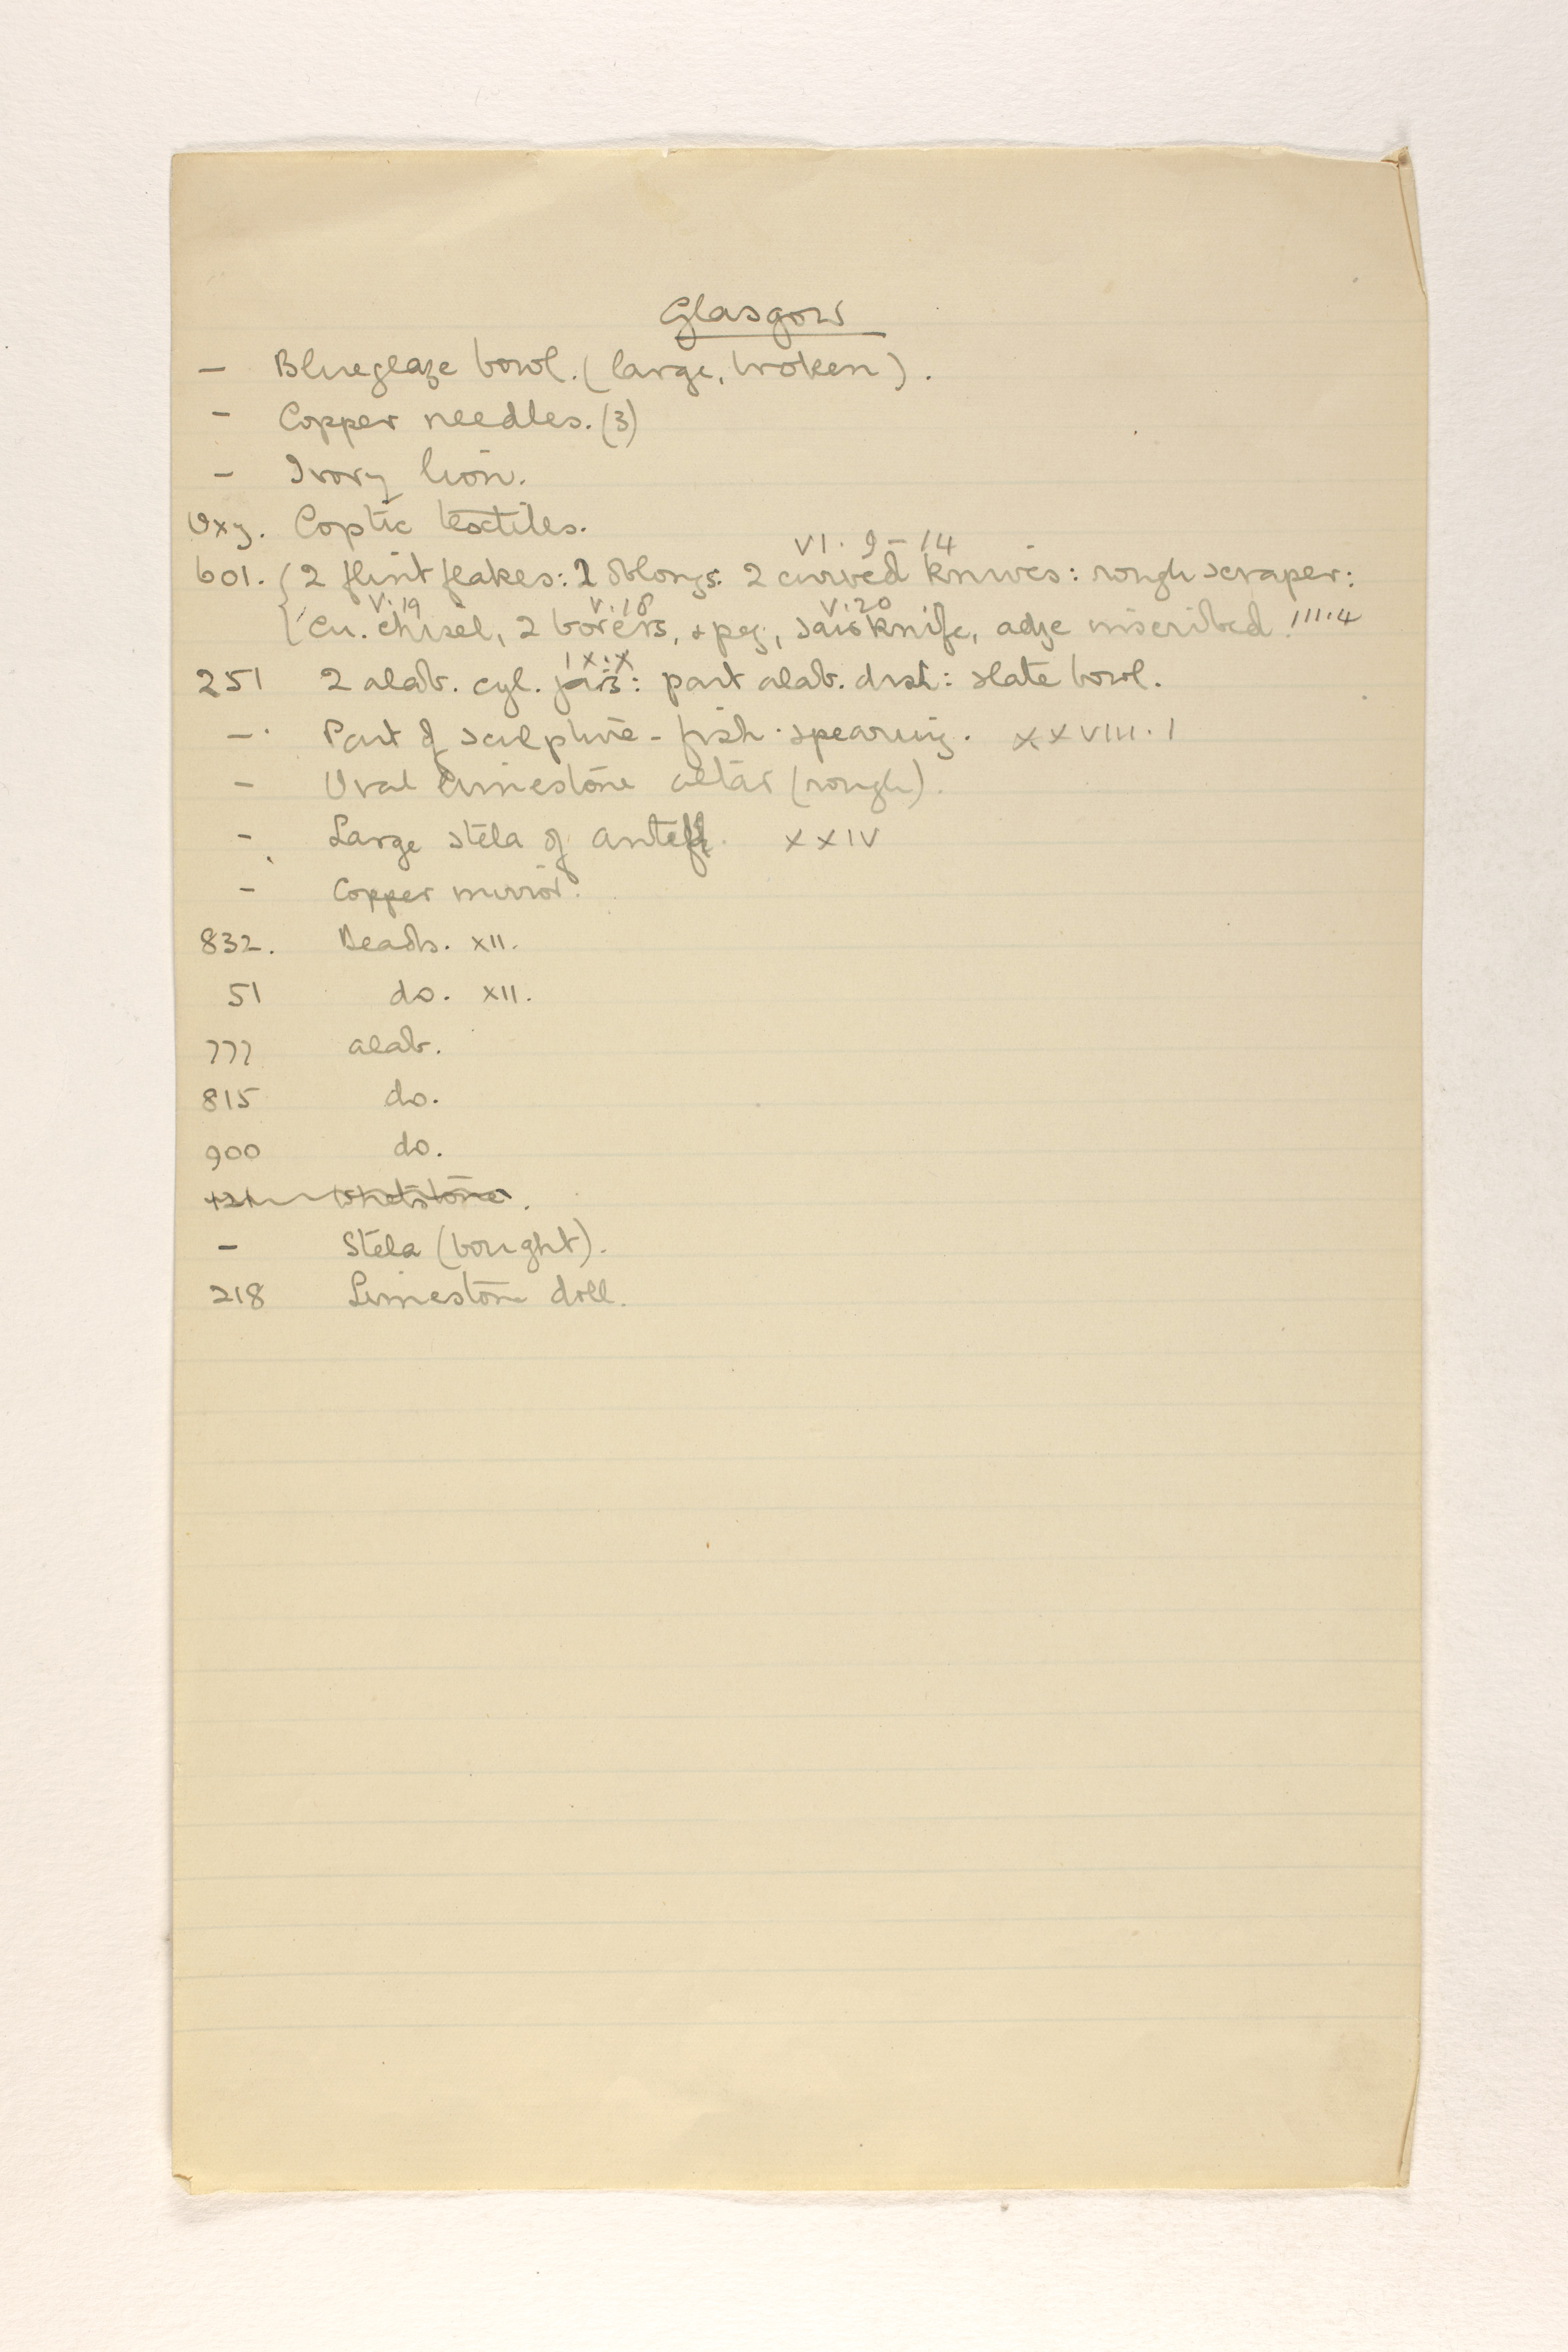 Glasgow
— Blueglaze bowl. (large, broken).
- Copper needles. (3)
- Ivory lion.
Oxy. Coptic textiles.
VI. 9-14
601. { 2 flint flakes: 2 oblongs: 2 curved knives: rough scraper:
V.19 V.18 V.20
{ Cu. chisel, 2 borers, & peg, knife, adze inscribed. III.4
IX:X
251 2 alab. cyl. jars: part alab. dish: slate bowl.
-. Part of sculpture - fish-spearing. XXVIII.1
- Oval limestone altar (rough).
- Large stela of Antef. XXIV
- Copper mirror.
832. Beads. XII.
51 do. XII.
777 alab.
815 do.
900 do.
whetstone.
- Stela (bought).
218 Limestone doll.